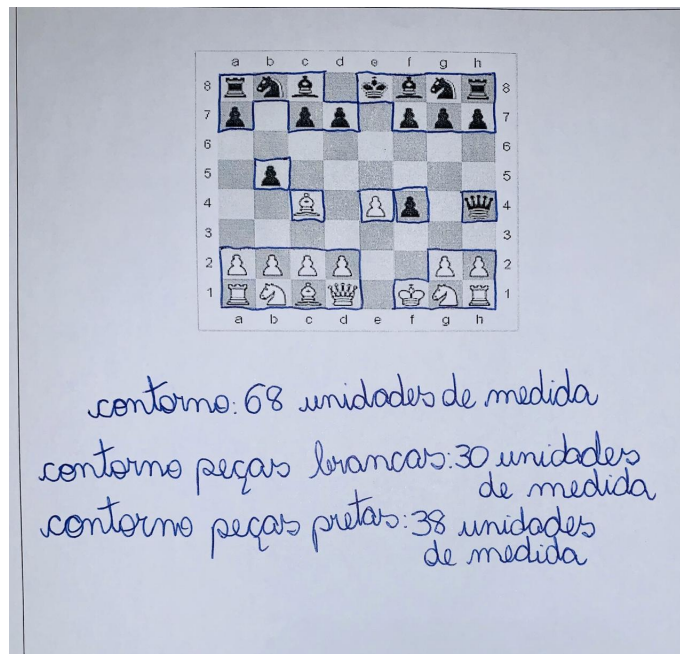 a b c d e f g h
8 8
7 7
6 6
5 5
4 4
3 3
2 2
1 1
a b c d e f g h
contorno: 68 unidades de medida
contorno peças brancas: 30 unidades
de medida
contorno peças pretas: 38 unidades
de medida